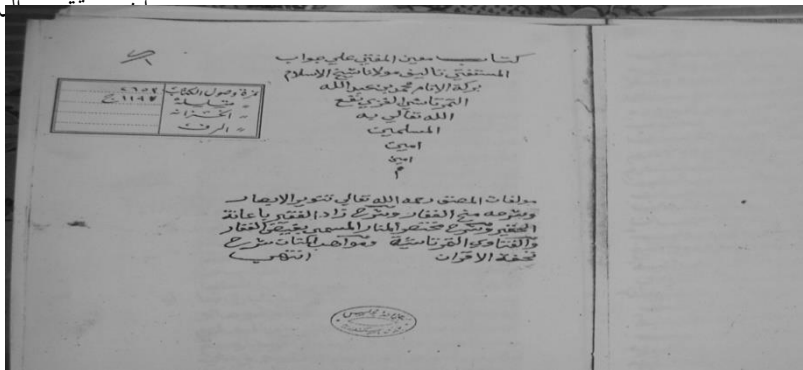 كتاب معين المفتي علي جواب
المستفتي تاليف مولانا شيخ الاسلام
بركة الانام محمد بن عبد الله
التمرتاشي الغزي نفع
الله تعالي به
المسلمين
امين
امين
م
نمرة وصول الكتاب ٢٦٥٢
" قيا سلة ١١٩٧ ج
" الخزانة
" الرف
مولفات المصنف رحمه الله تعالي تنوير الابصار
وشرحه منح الغفار وشرح زاد الفقير باعانة
الحقير وشرح مختصر المنار المسمي بفيض الغفار
والفتاوي التمرتاشية ومواهب المنان شرح
تحفة الاقران انتهي